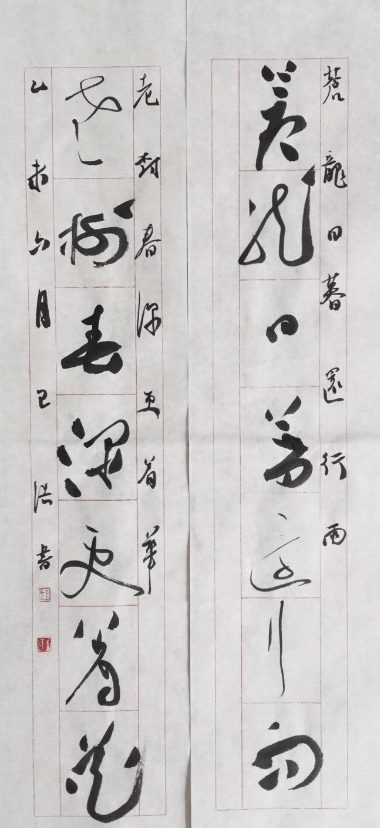 蒼龍日暮還行雨
蒼龍日暮還行雨
老樹春深更著華
老樹春深更著花
乙未六月 浩書